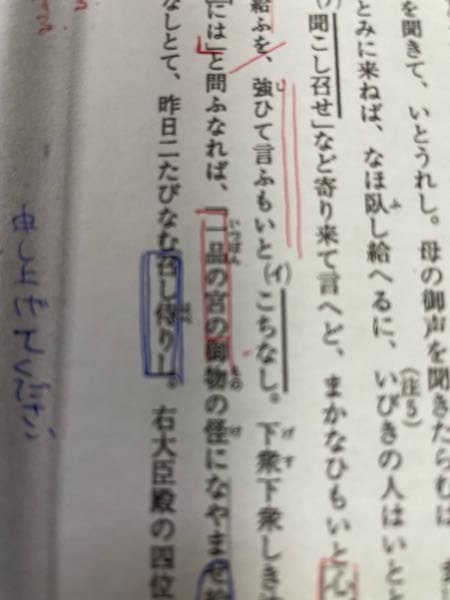 を聞きて、いとうれし。母の御声を聞きたらむは
とみに来ねば、なほ臥し給へるに、いびきの人はいと
聞こし召せ」など寄り来て言へど、まかなひもいと心
給ふを、強ひて言ふもいとこちなし。下衆下衆しき
には」と問ふなれば、「一品の宮の御物の怪になやませ給
なしとて、昨日二たびなむ召し侍り」。右大臣殿の四位
申し上げてください